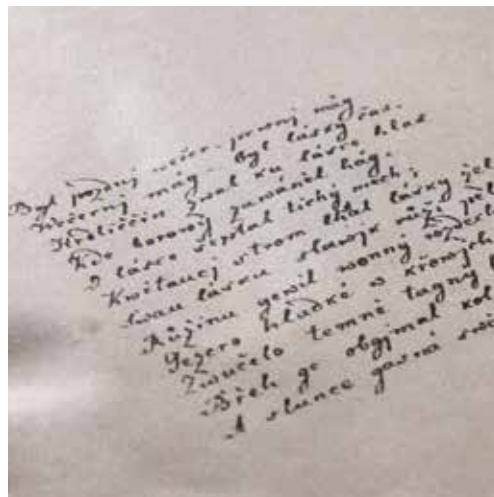 Byl pozdnj wečer – prwnj mág –
Wečernj mág – byl lásky čas.
Hrdliččin zwal ku lásce hlas
Kde borowý zawáněl hág.
O lásce šeptal tichý mech;
Kwětaucj strom lhal lásky žel
Swau lásku slawjk růži pěl
Růžinu gewil wonný
Gezero hladké w křowjch
Zwučelo temně tagný
Břeh ge obgjmal kol
A slunce gasná